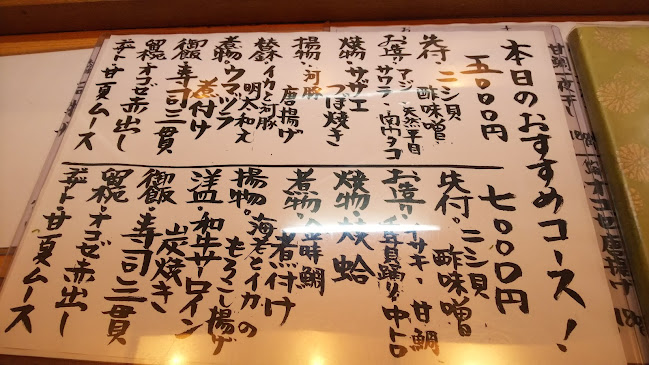 本日のおすすめコース!
五〇〇〇円
先付・ニシ貝
酢味噌
お造り・アジ・天然平目
サワラ・南マグロ
焼物・サザエ
つぼ焼き
揚物・河豚
唐揚げ
替鉢・イカと河豚
明太和え
煮物・ウマヅラ
煮付け
御飯・寿司三貫
留椀・オコゼ赤出し
デザート・甘夏ムース
七〇〇〇円
先付・ニシ貝
酢味噌
お造り・イサキ・甘鯛
鳥貝踊り・中トロ
焼物・焼蛤
煮物・金時鯛
煮付け
揚物・海老とイカの
もろこし揚げ
洋皿・和牛サーロイン
炭焼き
御飯・寿司三貫
留椀・オコゼ赤出し
デザート・甘夏ムース
甘鯛一夜干し
オコゼ唐揚げ